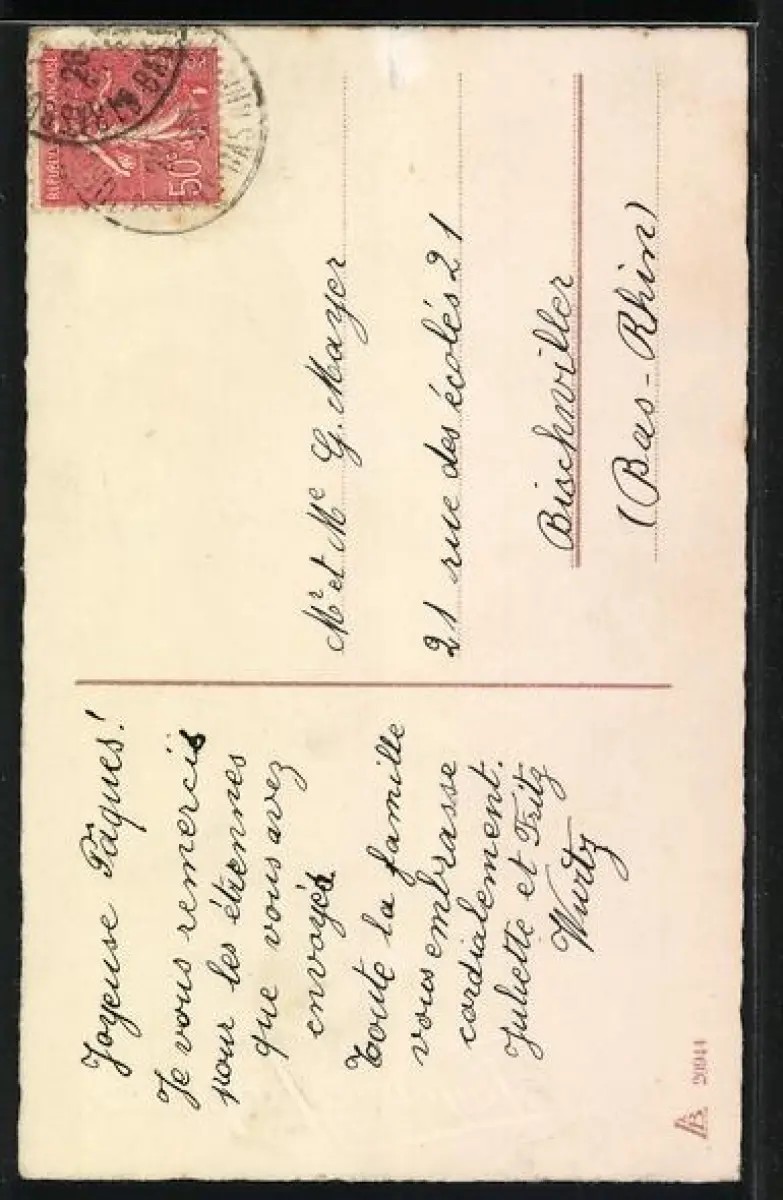 Joyeuse Pâques!
Je vous remercis
pour les étrennes
que vous avez
envoyés
Toute la famille
vous embrasse
cordialement.
Juliette et Fritz
Wurtz
Mr et Me G. Mayer
21 rue des écolés 21
Bischwiller
(Bas-Rhin)
50c
20944